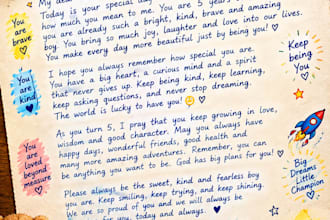 Today is your special day
how much you mean to me. You are 5 years
you are already such a bright, kind, brave and amazing
boy. You bring so much joy, laughter and love into our lives.
You make every day more beautiful just by being you!
I hope you always remember how special you are.
You have a big heart, a curious mind and a spirit
that never gives up. Keep being kind, keep learning,
keep asking questions, and never stop dreaming.
The world is lucky to have you!
As you turn 5, I pray that you keep growing in love,
wisdom and good character. May you always have
happy days, wonderful friends, good health and
many more amazing adventures. Remember, you can
be anything you want to be. God has big plans for you!
Please always be the sweet, kind and fearless boy
you are. Keep smiling, keep trying, and keep shining.
We are so proud of you and we will always be
for you, today and always.
You
are
brave
You
are
kind
You are
loved
beyond
measure
Keep
being
you
Big
Dreams
Little
Champion